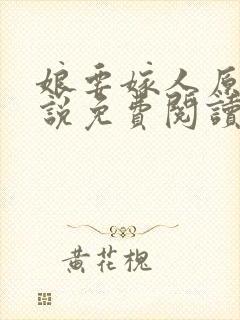 娘要嫁人原
說免費閱讀
黃花槐